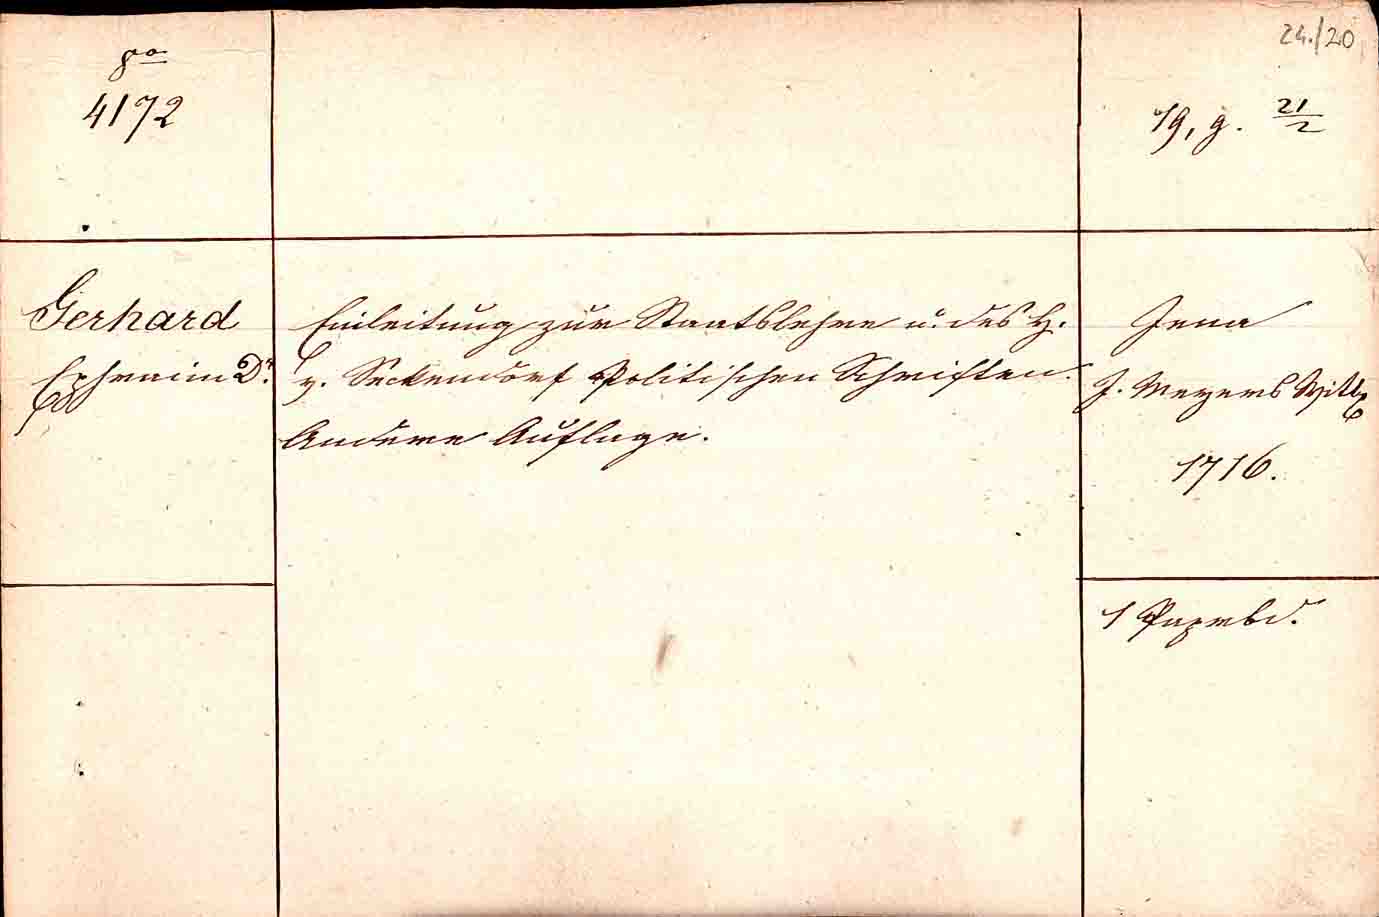 24./20
8vo
4172
19, g. 21/2
Gerhard
Ephraim Dr.
Einleitung zur Staatslehre u. des H.
v. Seckendorf Politischen Schriften.
Andere Auflage.
Jena
J. Meyers Witt
1716.
1 Paprbd.